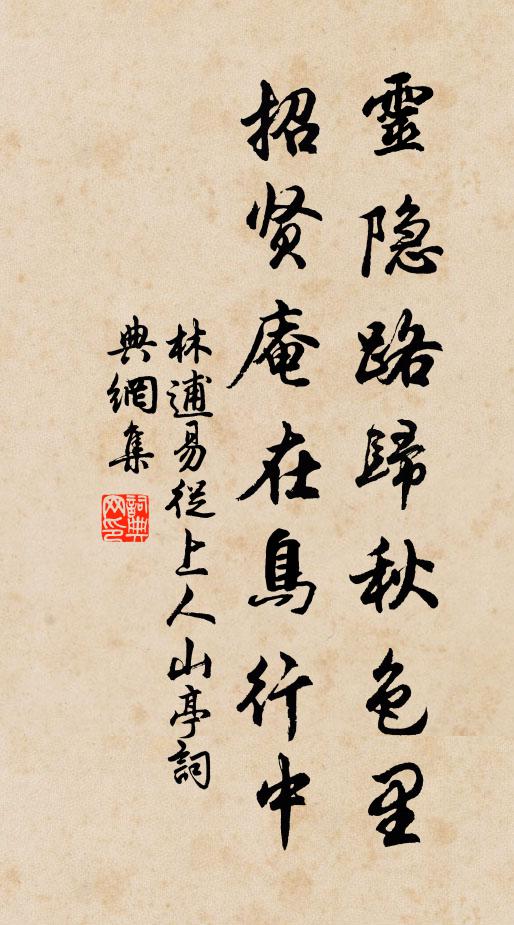 靈隐路歸秋色里
招贤庵在鳥行中
林逋易從上人山亭詞
典網集
詞典
网印